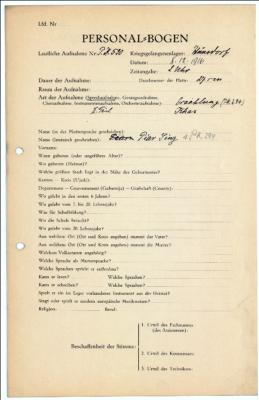 Lfd. Nr
PERSONAL-BOGEN
Lautliche Aufnahme Nr.: P.K. 590 Kriegsgefangenenlager: Wünsdorf
Datum: 8. 12. 1916
Zeitangabe: 2 Uhr
Dauer der Aufnahme: Durchmesser der Platte: 27 cm
Raum der Aufnahme:
Art der Aufnahme (Sprechaufnahme, Gesangsaufnahme, Choraufnahme, Instrumentenaufnahme, Orchesteraufnahme): Erzählung
II. Teil
Name (in der Muttersprache geschrieben):
Name (lateinisch geschrieben):
Vorname:
Wann geboren (oder ungefähres Alter)?
Wo geboren (Heimat)?
Welche größere Stadt liegt in der Nähe des Geburtsortes?
Kanton — Kreis (Ujedz):
Departement — Gouvernement (Gubernija) — Grafschaft (County):
Wo gelebt in den ersten 6 Jahren?
Wo gelebt vom 7. bis 20. Lebensjahr?
Was für Schulbildung?
Wo die Schule besucht?
Wo gelebt vom 20. Lebensjahr?
Aus welchem Ort (Ort und Kreis angeben) stammt der Vater?
Aus welchem Ort (Ort und Kreis angeben) stammt die Mutter?
Welchem Volksstamm angehörig?
Welche Sprache als Muttersprache?
Welche Sprachen spricht er außerdem?
Kann er lesen? Welche Sprachen?
Kann er schreiben? Welche Sprachen?
Spielt er ein im Lager vorhandenes Instrument aus der Heimat?
Singt oder spielt er modern europäische Musikweisen?
Religion: Beruf:
Beschaffenheit der Stimme:
1. Urteil des Fachmannes (des Assistenten):
2. Urteil des Kommissars:
3. Urteil des Technikers: